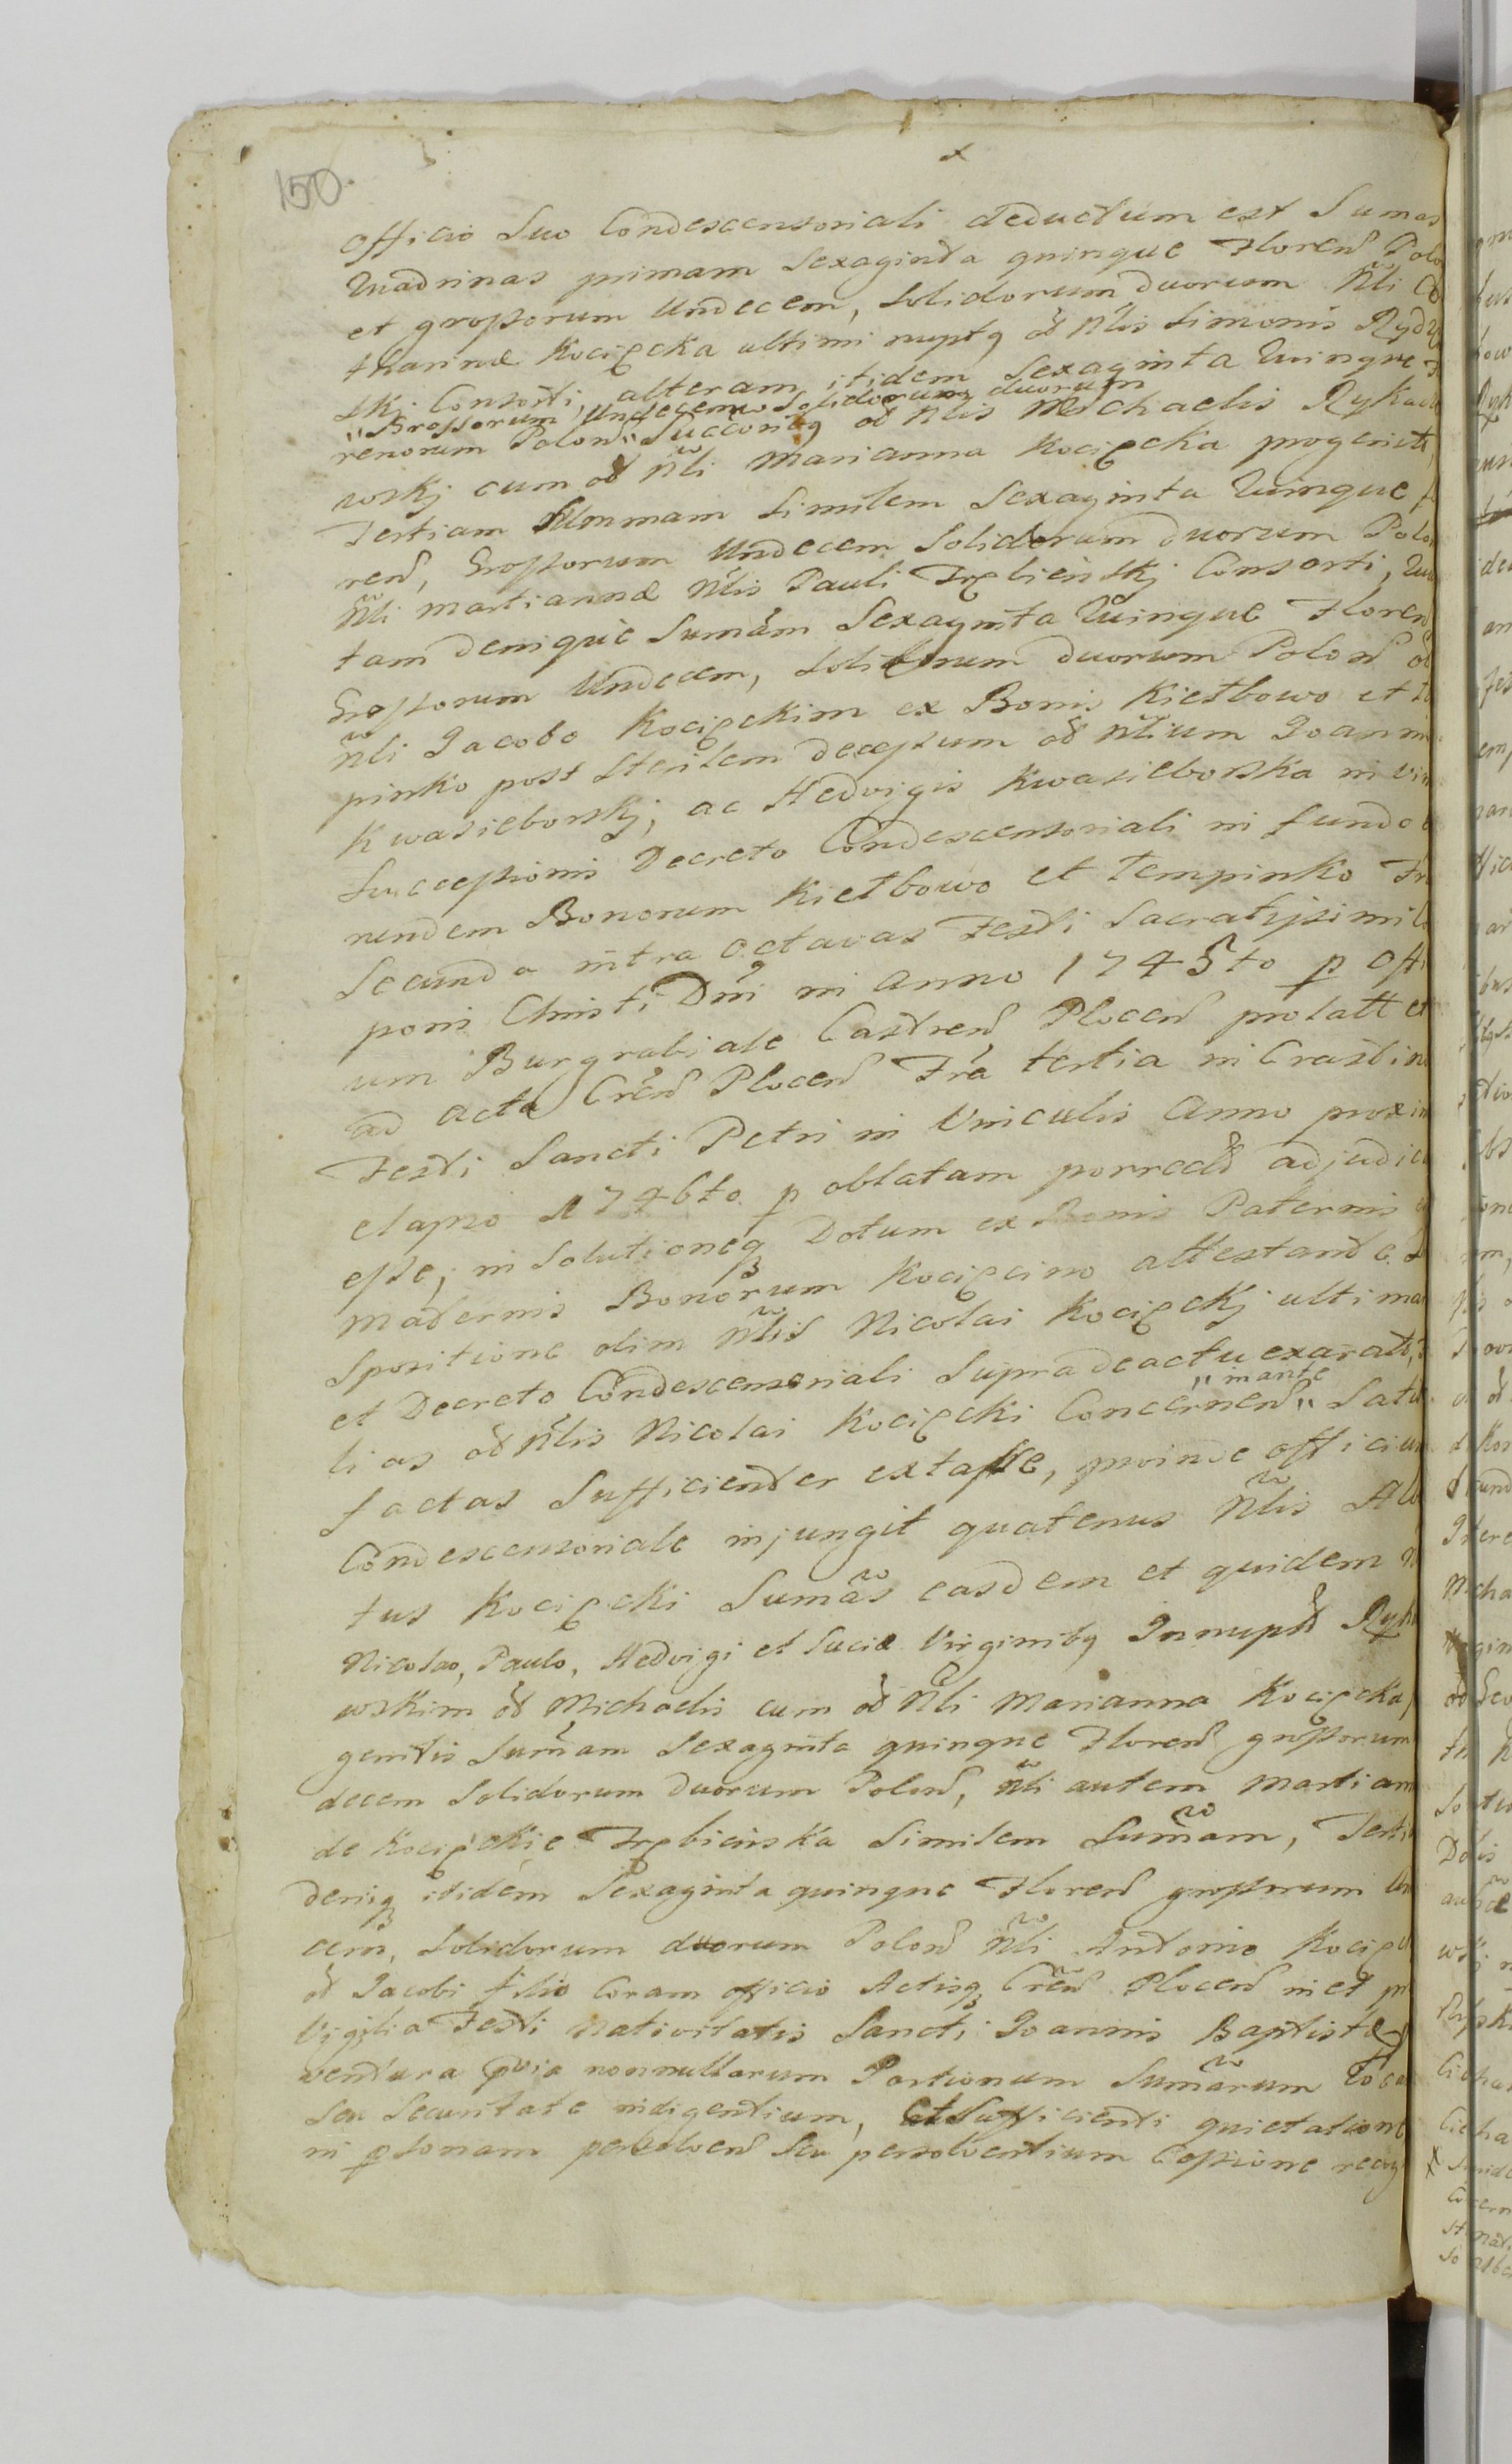 150.
officio Suo Condescensoriali deductum est Sumas
Quadrinas primam Sexaginta quinque Floren Polo
et grossorum Undecem, Solidorum duorum Nli Ca
tharinæ Kocięcka ultimi nuptą od Nlis Simonis Rydz
ski Consorti, alteram itidem Sexaginta Quinque F
"Grossorum Undecem Solidorum duorum
renorum Polon" Successorią od Nlis Michaelis Rykacz
wskj cum od Nli Marianna Kocięcka progenit,
Tertiam Summam Similem Sexaginta Quinque f
ren, Grossorum Undecem Solidorum duorum Polon
Nli Martiannæ Nlis Pauli Trębienskj Consorti, Qua
tam denique Sumam Sexaginta Quinque Floren
Grossorum Undecem, Solidorum duorum Polon od
Nli Jacobo Kocięckim ex Bonis Kiełbowo et Te
pinko post Sterilem decessum od Nlium Joannis
Kwasieborskj, ac Hedvigis Kwasieborska in vim
Successionis Decreto Condescensoriali in fundo
rundem Bonorum Kiełbowo et Tempinko Fr
Secunda intra octavas Festi Sacratissimi Co
poris Christi Dni in Anno 1745to p Offi
um Burgrabiale Castren Plocen prolatt et
ad acta Cren Plocen Fra tertia in Crastino
Festi Sancti Petri in Vinculis Anno proxim
elapso 1746to p oblatam porrect adjudica
esse, in Solutioneq Dotum ex Bonis Paternis e
Maternis Bonorum Kocięcino attestante
Spositione olim Nlis Nicolai Kocięckj ultima
et Decreto Condescensoriali Supra de actu exaratt,
"mante
li as od Nlis Nicolai Kocięcki Concernen" Satis
factas Sufficienter extasse, proinde officium
Condescensoriale injungit quatenus Nlis Alb
tus Kocięcki Sumas easdem et quidem N
Nicolao, Paulo, Hedvigi et Luciæ Virginibq Innupt Ryk
wskim od Michaelis cum od Nli Marianna Kocięcka
genitis Sumam Sexaginta quinque Floren grossorum
decem Solidorum duorum Polon, Nli autem Martian
de Kocięckie Trębieńska Similem Sumam, Terti
deniq itidem Sexaginta quinque Floren grossorum Un
cem, Solidorum duorum Polon Nli Antonio Kocięc
od Jacobi filio Coram officio Actisq Cren Plocen in et pr
Vigilia Festi Nativitatis Sancti Joannis Baptistæ
ventura quia nonnullarum Portionum Sumarum
Seu Securitate indigentium, et Sufficienti quietatione
in psonam persolven Seu persolventium Cessione recog